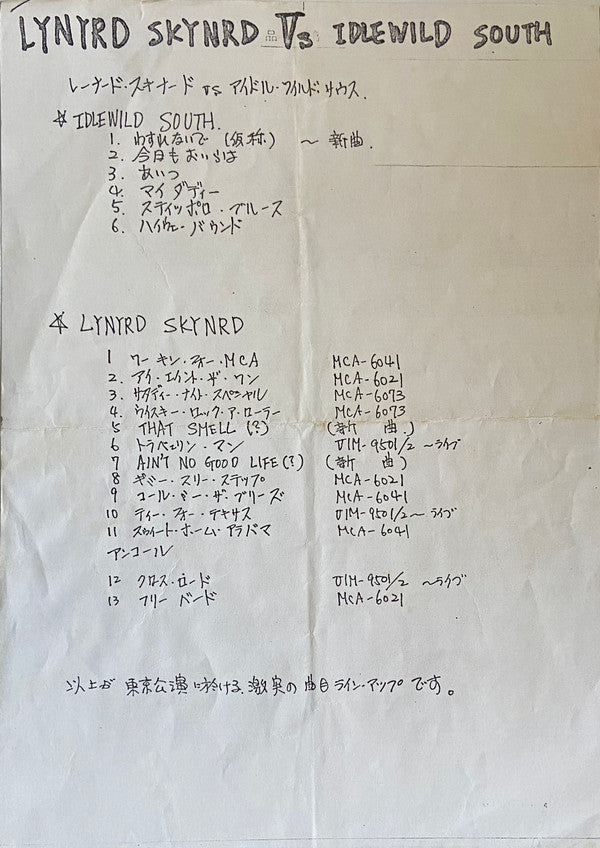 LYNYRD SKYNRD Vs IDLEWILD SOUTH
レーナード・スキナード vs アイドル・ワイルド・サウス.
☆ IDLEWILD SOUTH.
1. わすれないで (仮称) 〜 新曲.
2. 今日もおいらは
3. あいつ
4. マイ ダディー
5. スティッポロ・ブルース
6. ハイウェー・バウンド
☆ LYNYRD SKYNRD
1 ワーキン・フォー・MCA MCA-6041
2. アイ・エイント・ザ・ワン MCA-6021
3. サタデー・ナイト・スペシャル MCA-6073
4. ウイスキー・ロック・ア・ローラー MCA-6073
5 THAT SMELL (?) (新 曲.)
6 トラベェリン・マン VIM-9501/2 〜ライブ
7 AIN'T NO GOOD LIFE (?) (新 曲)
8 ギミー・スリー・ステップ MCA-6021
9 コール・ミー・ザ・ブリーズ MCA-6041
10 ティー・フォー・テキサス VIM-9501/2〜 ライブ
11 スウィート・ホーム・アラバマ MCA-6041
アンコール
12 クロス・ロード VIM-9501/2 〜ライブ
13 フリー バード MCA-6021
以上が 東京公演に於ける.激実の曲目ライン・アップです。